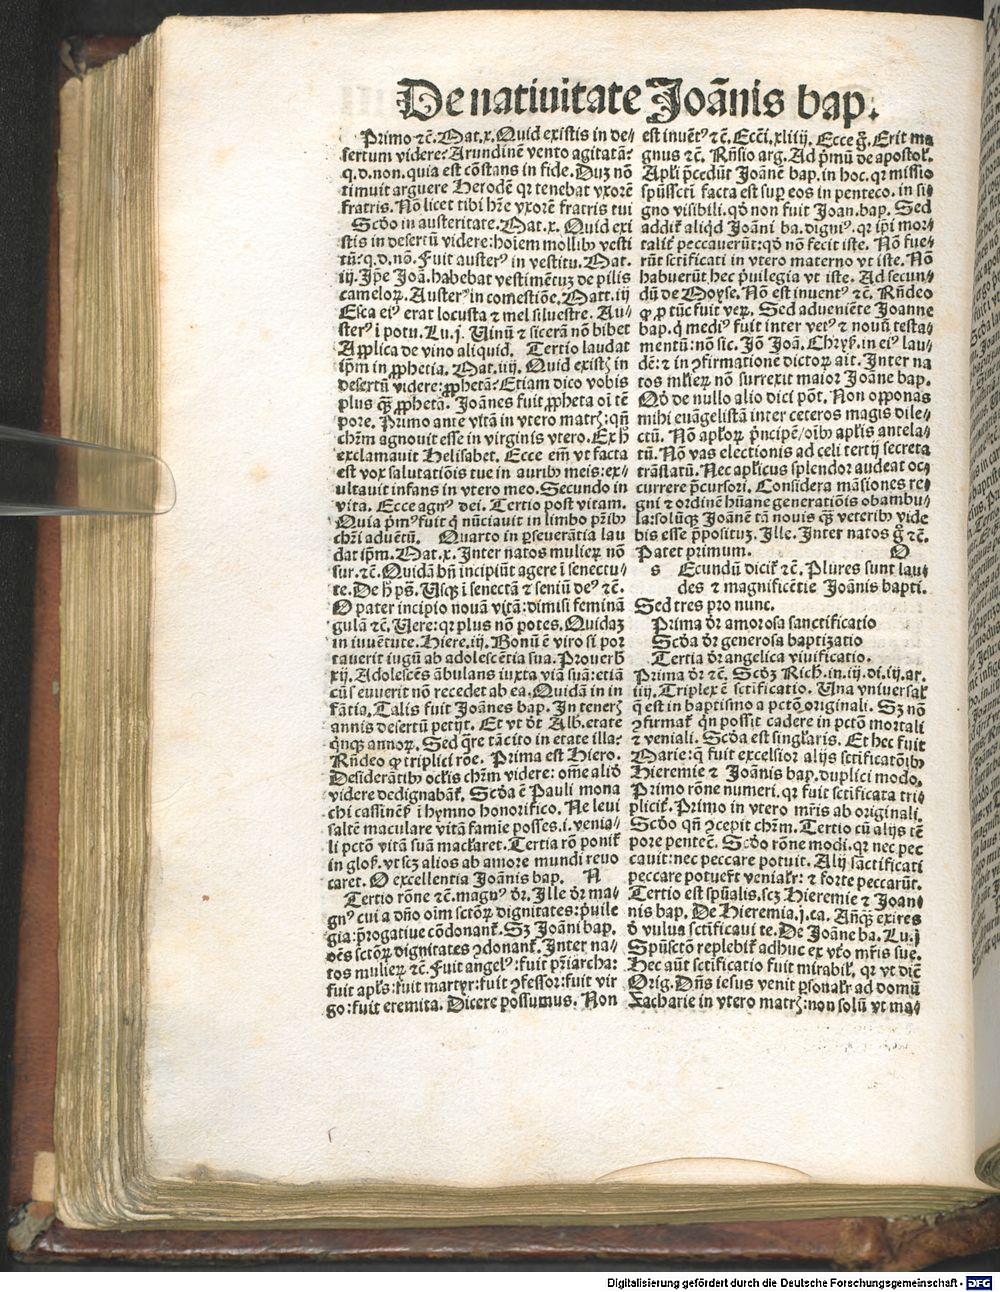 De natiuitate Joãnis bap.
Primo ⁊c̃. Mat.x. Quid existis in de⸗
sertum videre? Arundinẽ vento agitatã?
q.d.non. quia est cõstans in fide. Duz nõ
timuit arguere Herodẽ qꝛ tenebat vxorẽ
fratris. Nõ licet tibi hr̃e vxorẽ fratris tui
Scd̃o in austeritate. Mat.x. Quid exi
stis in desertũ videre: hoiem mollibꝰ vesti
tũ: q.d.nõ. Fuit austerꝰ in vestitu. Mat.
iij. Ip̃e Joã. habebat vestimẽtuz de pilis
cameloꝝ. Austerꝰ in comestiõe. Matt.iij
Esca eiꝰ erat locusta ⁊ mel siluestre. Au⸗
sterꝰ ĩ potu. Lu.j. Vinũ ⁊ sicerã nõ bibet
Applica de vino aliquid. Tertio laudat
ip̃m in ꝓphetia. Mat.iiij. Quid existꝭ in
desertũ videre: ꝓphetã? Etiam dico vobis
plus q̃ꝫ ꝓphetã. Joãnes fuit ꝓpheta oĩ tẽ
pore. Primo ante vitã in vtero matrꝭ: qñ
chr̃m agnouit esse in virginis vtero. Ex h̃
exclamauit Helisabet. Ecce em̃ vt facta
est vox salutatiõis tue in auribꝰ meis: ex⸗
ultauit infans in vtero meo. Secundo in
vita. Ecce agnꝰ dei. Tertio post vitam.
Quia p̃mꝰ fuit q̃ nũciauit in limbo pr̃ibꝰ
chr̃i aduẽtũ. Quarto in ꝑseuerãtia lau
dat ip̃m. Mat.x. Inter natos mulieꝝ nõ
sur. ⁊c̃. Quidã bñ incipiũt agere ĩ senectu⸗
te. De h̃ ps̃. Vsqꝫ ĩ senectã ⁊ seniũ deꝰ ⁊c̃.
O pater incipio nouã vitã: dimisi feminã
gulã ⁊c̃. Vere: qꝛ plus nõ potes. Quidaz
in iuuẽtute. Hiere.iij. Bonũ ẽ viro si por
tauerit iugũ ab adolescẽtia sua. Prouerb̃
xij. Adolescẽs ãbulans iuxta viã suã: etiã
cũ senuerit nõ recedet ab ea. Quidã in in
fãtia. Talis fuit Joãnes bap. In tenerꝭ
annis desertũ petijt. Et vt dt̃ Alb. etate
q̃nqꝫ annoꝝ. Sed q̃re tã cito in etate illa?
Rñdeo ꝙ triplici rõe. Prima est Hiero.
Desiderãtibꝰ ocl̃is chr̃m videre: om̃e aliđ
videre dedignabãt̃. Scd̃a ẽ Pauli mona
chi cassineñ ĩ hymno honorifico. Ne leui
saltẽ maculare vitã famie posses.i. venia⸗
li pctõ vitã suã mac̃laret. Tertia rõ ponit̃
in glos̃. vt scz alios ab amore mundi reuo
caret. O excellentia Joãnis bap. N
Tertio rõne ⁊c̃. magnꝰ dr̃. Ille dr̃ ma⸗
gnꝰ cui a dño oĩm sctõꝝ dignitates: p̃uile
gia: p̃rogatiue cõdonant̃. Sꝫ Joãni bap.
oẽs sctõꝝ dignitates ꝯdonant̃. Inter na⸗
tos mulieꝝ ⁊c̃. Fuit angelꝰ: fuit pr̃iarcha:
fuit apl̃s: fuit martyr: fuit ꝯfessor: fuit vir
go: fuit eremita. Dicere possumus. Non
est inuẽtꝰ ⁊c̃. Ecc̃i.xliiij. Ecce g̃. Erit ma
gnus ⁊c̃. Rñsio arg. Ad p̃mũ de apostol̃.
Apl̃i p̃cedũt Joãnẽ bap. in hoc. qꝛ missio
spũssctĩ facta est suꝑ eos in penteco. in si⸗
gno visibili. qđ non fuit Joan. bap. Sed
addit̃ aliqđ Joãni ba. digniꝰ. qꝛ ip̃i mor⸗
talit̃ peccauerũt: qđ nõ fecit iste. Nõ fue⸗
rũt sctificati in vtero materno vt iste. Nõ
habuerũt hec p̃uilegia vt iste. Ad secun⸗
dũ de Moyse. Nõ est inuentꝰ ⁊c̃. Rñdeo
ꝙ ꝓ tũc fuit veꝝ. Sed adueniẽte Joanne
bap. q̃ mediꝰ fuit inter vetꝰ ⁊ nouũ testa⸗
mentũ: nõ sic. Jõ Joã. Chryš. in eiꝰ lau⸗
dẽ: ⁊ in ꝯfirmatione dictoꝝ ait. Inter na
tos ml̃ieꝝ nõ surrexit maior Joãne bap.
Qđ de nullo alio dici põt. Non opponas
mihi euãgelistã inter ceteros magis dile⸗
ctũ. Nõ apl̃oꝝ p̃ncipẽ/oĩbꝰ apl̃is antela⸗
tũ. Nõ vas electionis ad celi tertij secreta
trãstatũ. Nec apl̃icus splendor audeat oc⸗
currere p̃cursori. Considera mãsiones re⸗
gni ⁊ ordinẽ hũane generatiõis obambu⸗
la: solũqꝫ Joãnẽ tã nouis q̃ꝫ veteribꝰ vide
bis esse p̃positũz. Ille. Inter natos g̃ ⁊c̃.
Patet primum. O
s Ecundũ dicit̃ ⁊c̃. Plures sunt lau⸗
des ⁊ magnificẽtie Joãnis bapti.
Sed tres pro nunc.
Prima dr̃ amorosa sanctificatio
Scd̃a dr̃ generosa baptizatio
Tertia dr̃ angelica viuificatio.
Prima dr̃ ⁊c̃. Scd̃z Rich. in.iij.di.iij.ar.
iij. Triplex ẽ sctificatio. Una vniuersal̃
q̃ est in baptismo a pctõ originali. Sꝫ nõ
ꝯfirmat̃ q̃n possit cadere in pctõ mortali
⁊ veniali. Scd̃a est singl̃aris. Et hec fuit
Marie: q̃ fuit excelsior alijs sctificatõibꝰ
Hieremie ⁊ Joãnis bap. duplici modo.
Primo rõne numeri. qꝛ fuit sctificata tri⸗
plicit̃. Primo in vtero mr̃is ab originali.
Scd̃o qñ ꝯcepit chr̃m. Tertio cũ alijs tẽ
pore pentec̃. Scd̃o rõne modi. qꝛ nec pec
cauit: nec peccare potuit. Alij sãctificati
peccare potuer̃t venialr̃: ⁊ forte peccarũt.
Tertio est spũalis. scz Hieremie ⁊ Joan⸗
nis bap. De Hieremia.j.ca. Añq̃ꝫ exires
đ vulua sctificaui te. De Joãne ba. Lu.j
Spũsctõ replebit̃ adhuc ex vt̃o mr̃is sue.
Hec aũt sctificatio fuit mirabil̃. qꝛ vt dic̃
Orig. Dñs iesus venit ꝑsonalr̃ ad domũ
Zacharie in vtero matrꝭ: non solũ vt ma⸗
Digitalisierung gefördert durch die Deutsche Forschungsgemeinschaft - DFG